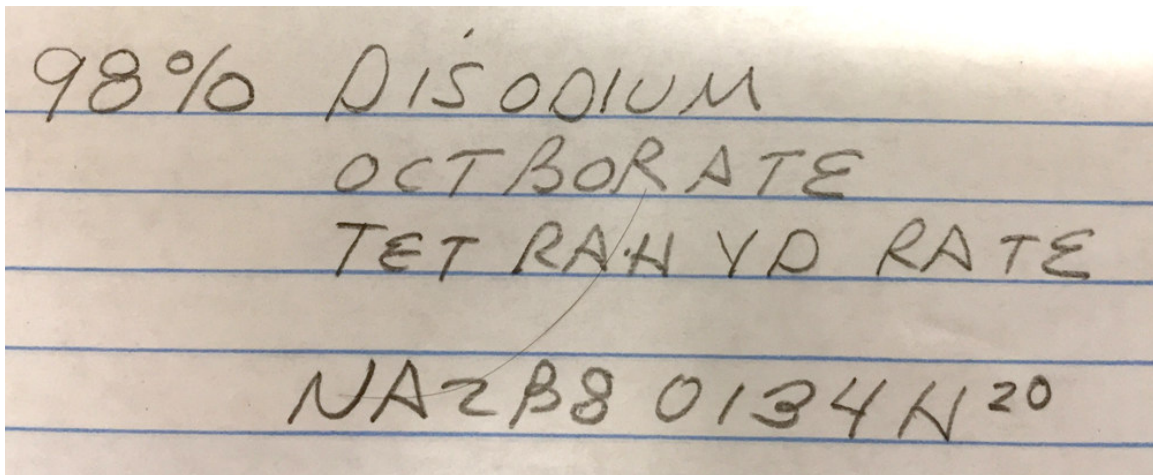 98% DISODIUM
OCTBORATE
TETRAHYDRATE
NA2B8 O134H20